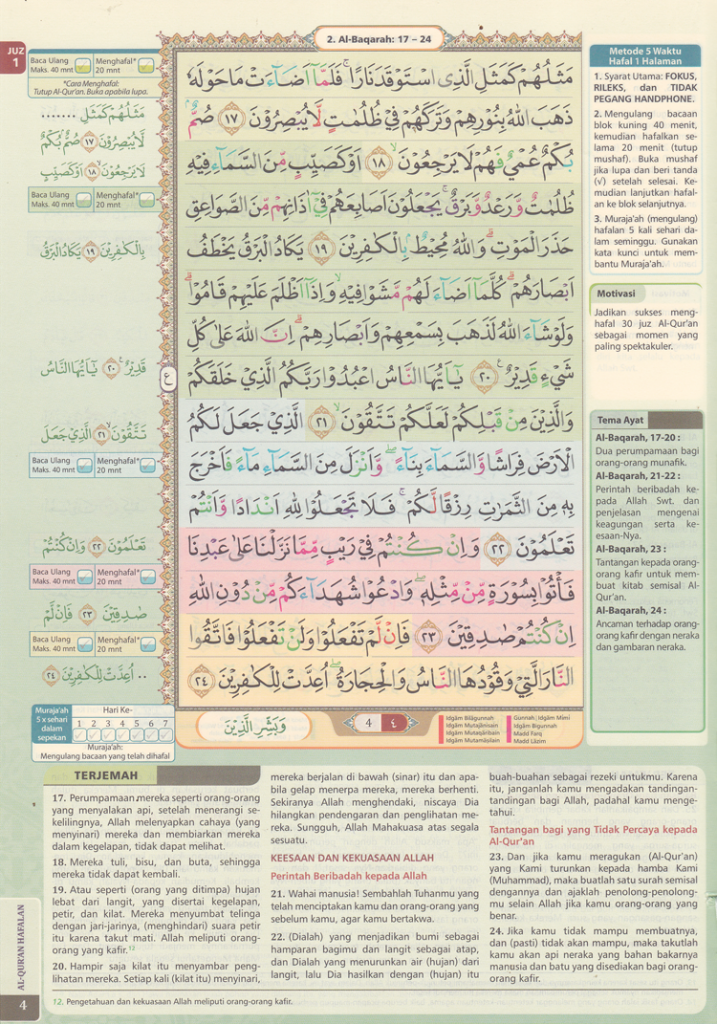 2. Al-Baqarah: 17 – 24
JUZ
1
Baca Ulang
Maks. 40 mnt
Menghafal*
20 mnt
*Cara Menghafal:
Tutup Al-Qur'an. Buka apabila lupa.
مَثَلُهُمْ كَمَثَلِ .......
لَّا يُبْصِرُوْنَ ١٧ صُمٌّۢ بُكْمٌ
لَا يَرْجِعُوْنَ ١٨ اَوْ كَصَيِّبٍ
Baca Ulang
Maks. 40 mnt
Menghafal*
20 mnt
بِالْكٰفِرِيْنَ ١٩ يَكَادُ الْبَرْقُ
قَدِيْرٌ ٢٠ يٰٓاَيُّهَا النَّاسُ
تَتَّقُوْنَ ٢١ الَّذِيْ جَعَلَ
Baca Ulang
Maks. 40 mnt
Menghafal*
20 mnt
تَعْلَمُوْنَ ٢٢ وَاِنْ كُنْتُمْ
Baca Ulang
Maks. 40 mnt
Menghafal*
20 mnt
صٰدِقِيْنَ ٢٣ فَاِنْ لَّمْ
Baca Ulang
Maks. 40 mnt
Menghafal*
20 mnt
.. اُعِدَّتْ لِلْكٰفِرِيْنَ ٢٤
Muraja'ah
5 x sehari
dalam
sepekan
Hari Ke-
1 2 3 4 5 6 7
Muraja'ah:
Mengulang bacaan yang telah dihafal
مَثَلُهُمْ كَمَثَلِ الَّذِى اسْتَوْقَدَ نَارًاۚ فَلَمَّآ اَضَاۤءَتْ مَا حَوْلَهٗ
ذَهَبَ اللّٰهُ بِنُوْرِهِمْ وَتَرَكَهُمْ فِيْ ظُلُمٰتٍ لَّا يُبْصِرُوْنَ ١٧ صُمٌّۢ
بُكْمٌ عُمْيٌ فَهُمْ لَا يَرْجِعُوْنَۙ ١٨ اَوْ كَصَيِّبٍ مِّنَ السَّمَاۤءِ فِيْهِ
ظُلُمٰتٌ وَّرَعْدٌ وَّبَرْقٌۚ يَجْعَلُوْنَ اَصَابِعَهُمْ فِيْٓ اٰذَانِهِمْ مِّنَ الصَّوَاعِقِ
حَذَرَ الْمَوْتِۗ وَاللّٰهُ مُحِيْطٌۢ بِالْكٰفِرِيْنَ ١٩ يَكَادُ الْبَرْقُ يَخْطَفُ
اَبْصَارَهُمْۗ كُلَّمَآ اَضَاۤءَ لَهُمْ مَّشَوْا فِيْهِۙ وَاِذَآ اَظْلَمَ عَلَيْهِمْ قَامُوْاۗ
وَلَوْ شَاۤءَ اللّٰهُ لَذَهَبَ بِسَمْعِهِمْ وَاَبْصَارِهِمْۗ اِنَّ اللّٰهَ عَلٰى كُلِّ
شَيْءٍ قَدِيْرٌࣖ ٢٠ يٰٓاَيُّهَا النَّاسُ اعْبُدُوْا رَبَّكُمُ الَّذِيْ خَلَقَكُمْ
وَالَّذِيْنَ مِنْ قَبْلِكُمْ لَعَلَّكُمْ تَتَّقُوْنَۙ ٢١ الَّذِيْ جَعَلَ لَكُمُ
الْاَرْضَ فِرَاشًا وَّالسَّمَاۤءَ بِنَاۤءًۖ وَّاَنْزَلَ مِنَ السَّمَاۤءِ مَاۤءً فَاَخْرَجَ
بِهٖ مِنَ الثَّمَرٰتِ رِزْقًا لَّكُمْۚ فَلَا تَجْعَلُوْا لِلّٰهِ اَنْدَادًا وَّاَنْتُمْ
تَعْلَمُوْنَ ٢٢ وَاِنْ كُنْتُمْ فِيْ رَيْبٍ مِّمَّا نَزَّلْنَا عَلٰى عَبْدِنَا
فَأْتُوْا بِسُوْرَةٍ مِّنْ مِّثْلِهٖۖ وَادْعُوْا شُهَدَاۤءَكُمْ مِّنْ دُوْنِ اللّٰهِ
اِنْ كُنْتُمْ صٰدِقِيْنَ ٢٣ فَاِنْ لَّمْ تَفْعَلُوْا وَلَنْ تَفْعَلُوْا فَاتَّقُوا
النَّارَ الَّتِيْ وَقُوْدُهَا النَّاسُ وَالْحِجَارَةُۖ اُعِدَّتْ لِلْكٰفِرِيْنَ ٢٤
ع
وَبَشِّرِ الَّذِيْنَ
4 ٤
Idgām Bilāgunnah
Idgām Mutajānisain
Idgām Mutaqāribain
Idgām Mutamāṡilain
Gunnah, Idgām Mīmī
Idgām Bigunnah
Madd Farq
Madd Lāzim
Metode 5 Waktu
Hafal 1 Halaman
1. Syarat Utama: FOKUS,
RILEKS, dan TIDAK
PEGANG HANDPHONE.
2. Mengulang bacaan
blok kuning 40 menit,
kemudian hafalkan se-
lama 20 menit (tutup
mushaf). Buka mushaf
jika lupa dan beri tanda
(√) setelah selesai. Ke-
mudian lanjutkan hafal-
an ke blok selanjutnya.
3. Muraja'ah (mengulang)
hafalan 5 kali sehari da-
lam seminggu. Gunakan
kata kunci untuk mem-
bantu Muraja'ah.
Motivasi
Jadikan sukses meng-
hafal 30 juz Al-Qur'an
sebagai momen yang
paling spektakuler.
Tema Ayat
Al-Baqarah, 17-20 :
Dua perumpamaan bagi
orang-orang munafik.
Al-Baqarah, 21-22 :
Perintah beribadah ke-
pada Allah Swt. dan
penjelasan mengenai
keagungan serta ke-
esaan-Nya.
Al-Baqarah, 23 :
Tantangan kepada orang-
orang kafir untuk mem-
buat kitab semisal Al-
Qur'an.
Al-Baqarah, 24 :
Ancaman terhadap orang-
orang kafir dengan neraka
dan gambaran neraka.
TERJEMAH
17. Perumpamaan mereka seperti orang-orang
yang menyalakan api, setelah menerangi se-
kelilingnya, Allah melenyapkan cahaya (yang
menyinari) mereka dan membiarkan mereka
dalam kegelapan, tidak dapat melihat.
18. Mereka tuli, bisu, dan buta, sehingga
mereka tidak dapat kembali.
19. Atau seperti (orang yang ditimpa) hujan
lebat dari langit, yang disertai kegelapan,
petir, dan kilat. Mereka menyumbat telinga
dengan jari-jarinya, (menghindari) suara petir
itu karena takut mati. Allah meliputi orang-
orang yang kafir.¹²
20. Hampir saja kilat itu menyambar peng-
lihatan mereka. Setiap kali (kilat itu) menyinari,
mereka berjalan di bawah (sinar) itu dan apa-
bila gelap menerpa mereka, mereka berhenti.
Sekiranya Allah menghendaki, niscaya Dia
hilangkan pendengaran dan penglihatan me-
reka. Sungguh, Allah Mahakuasa atas segala
sesuatu.
KEESAAN DAN KEKUASAAN ALLAH
Perintah Beribadah kepada Allah
21. Wahai manusia! Sembahlah Tuhanmu yang
telah menciptakan kamu dan orang-orang yang
sebelum kamu, agar kamu bertakwa.
22. (Dialah) yang menjadikan bumi sebagai
hamparan bagimu dan langit sebagai atap,
dan Dialah yang menurunkan air (hujan) dari
langit, lalu Dia hasilkan dengan (hujan) itu
buah-buahan sebagai rezeki untukmu. Karena
itu, janganlah kamu mengadakan tandingan-
tandingan bagi Allah, padahal kamu menge-
tahui.
Tantangan bagi yang Tidak Percaya kepada
Al-Qur'an
23. Dan jika kamu meragukan (Al-Qur'an)
yang Kami turunkan kepada hamba Kami
(Muhammad), maka buatlah satu surah semisal
dengannya dan ajaklah penolong-penolong-
mu selain Allah jika kamu orang-orang yang
benar.
24. Jika kamu tidak mampu membuatnya,
dan (pasti) tidak akan mampu, maka takutlah
kamu akan api neraka yang bahan bakarnya
manusia dan batu yang disediakan bagi orang-
orang kafir.
12. Pengetahuan dan kekuasaan Allah meliputi orang-orang kafir.
AL-QUR'AN HAFALAN
4